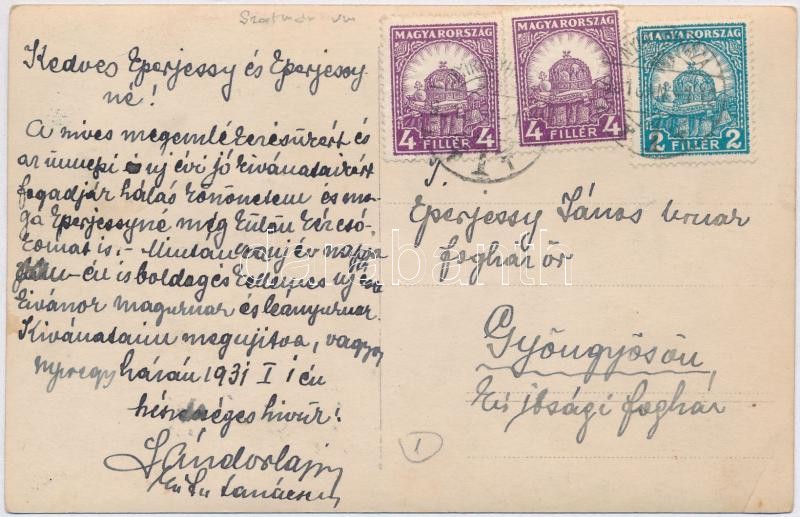 Szatmár vm
Kedves Eperjessy és Eperjessy
né!
A szives megemlékezésükért és
az ünnepi új évi jó kivánataikért
fogadják hálás köszönetem és ma-
ga Eperjessyné még külön kézcsó-
komat is; - Miután új év napja
én is boldog és kellemes új év
kivánok maguknak és leányuknak.
Kivánataim megujitva, vagyok
Nyiregyházán 1931 I 1 én
készséges hivük:
Sándorlajos
MAGYARORSZÁG
4 FILLÉR 4
MAGYARORSZÁG
4 FILLÉR 4
MAGYARORSZÁG
2 FILLÉR 2
T.
Eperjessy János urnak
fogház őr
Gyöngyösön
Kir jbsági fogház
1
darabanth